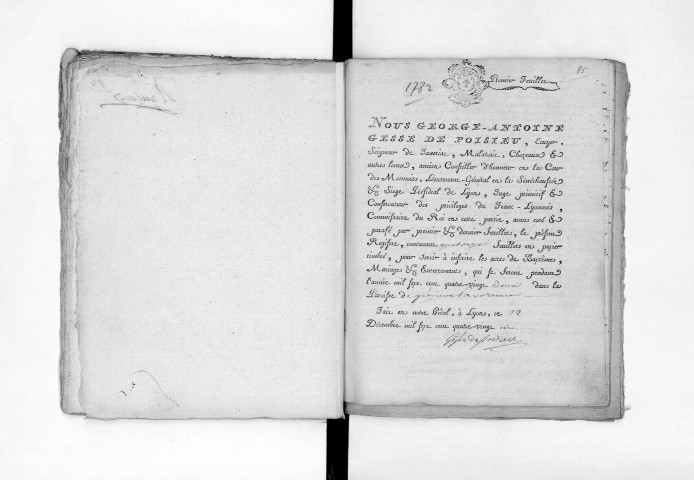 85
1782
Premier Feuillet
NOUS GEORGE-ANTOINE
GESSE DE POISIEU, Ecuyer,
Seigneur de Jauriac, Maladaie, Chazeaux &
autres lieux, ancien Conseiller d'honneur en la Cour
des Monnoies, Lieutenant-Général en la Sénéchaussée
& Siege Présidial de Lyon, Juge primitif &
Conservateur des privileges du Franc-Lyonnois,
Commissaire du Roi en cette partie, avons coté &
parafé par premier & dernier Feuillets, le présent
Registre, contenant quatorze Feuillets en papier
timbré, pour servir à inscrire les actes de Baptêmes,
Mariages & Enterrements, qui se feront pendant
l'année mil sept cent quatre-vingt Deux dans la
Paroisse de
Fait en notre Hôtel, à Lyon, ce 12
Décembre mil sept cent quatre-vingt un
Gesse de Poisieu